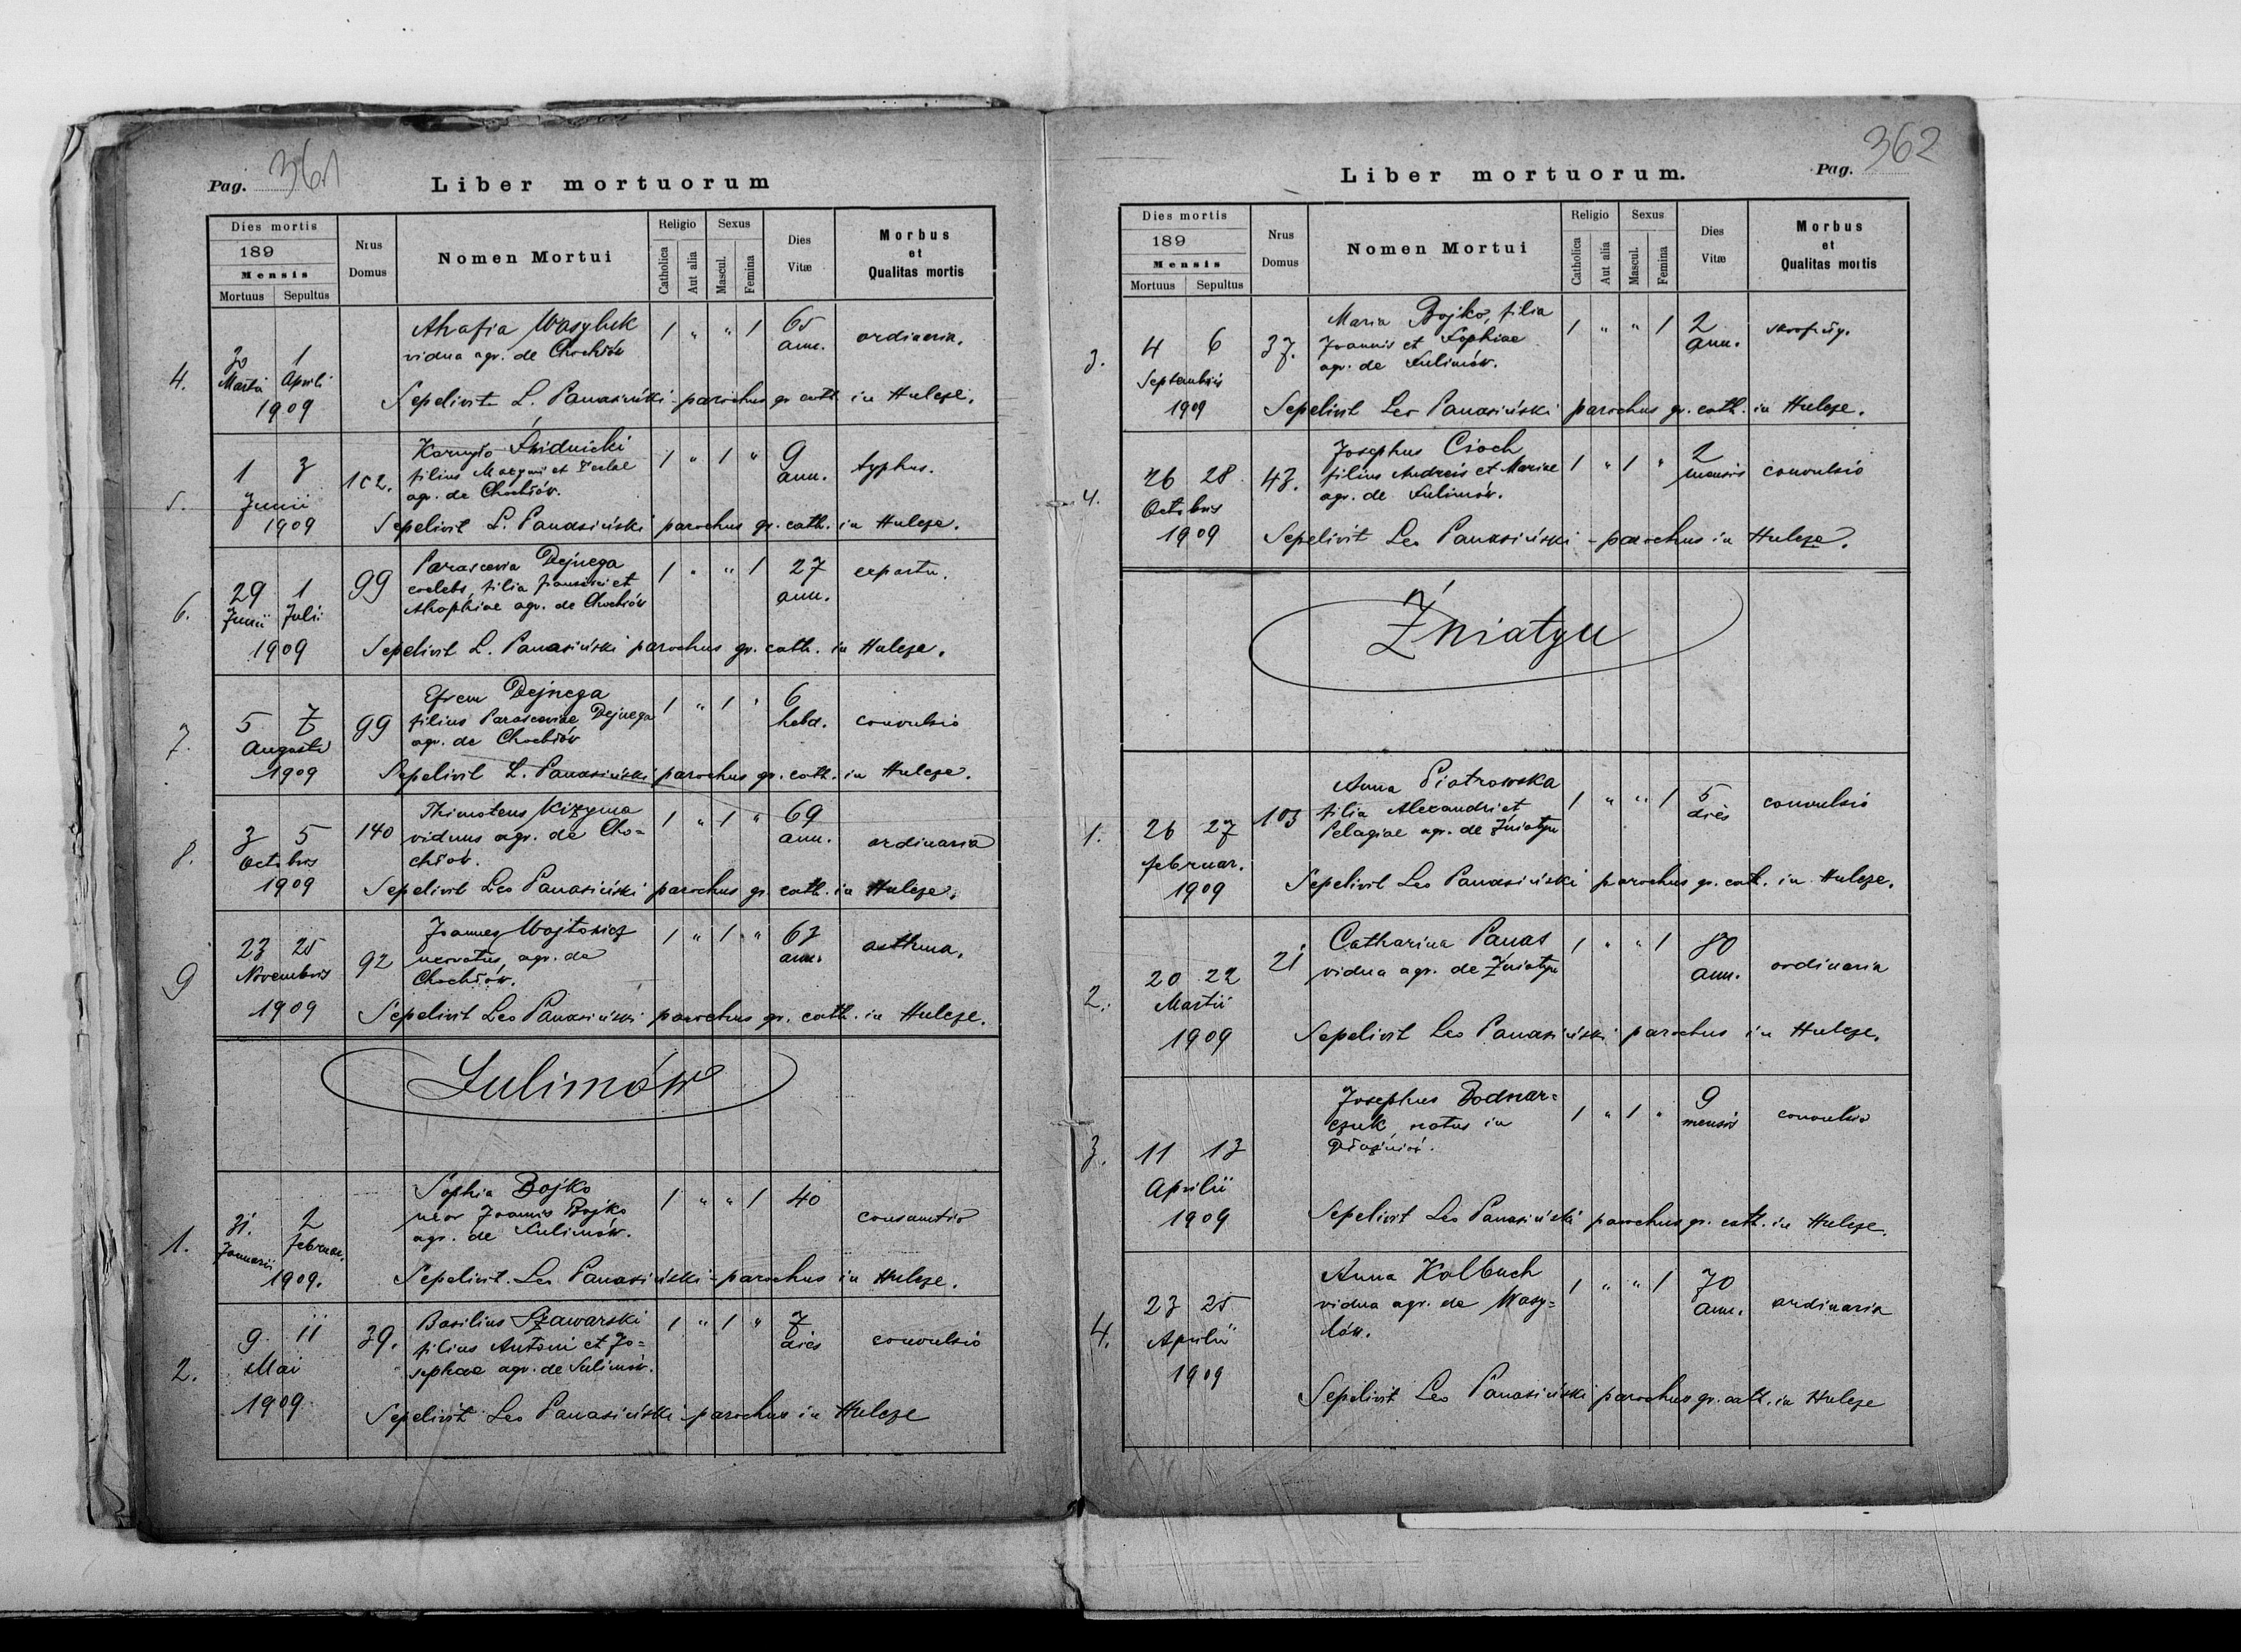 Pag. 361
Liber mortuorum
Dies mortis
189
Mensis
Mortuus Sepultus
Nrus Domus
Nomen Mortui
Religio
Catholica
Aut alia
Sexus
Mascul.
Femina
Dies Vitæ
Morbus
et
Qualitas mortis
4.
30 1
Martii Aprili
1909
Ahafia Wasyluk
vidua agr. de Chochłów
1 " " 1
65
ann.
ordinaria.
Sepelivit L. Panasiński - parochus gr. cath. in Hulcze.
5.
1 3
Junii
1909
102.
Kornyło Świdnicki
filius et
agr. de Chochłów.
1 " 1 "
9
ann.
typhus.
Sepelivit L. Panasiński parochus gr. cath. in Hulcze.
6.
29 1
Junii Julii
1909
99
Parascevia Dejnega
coelebs, filia et
Ahaphiae agr. de Chochłów
1 " " 1
27
ann.
expartu.
Sepelivit L. Panasiński parochus gr. cath. in Hulcze.
7.
5 7
Augusti
1909
99
Efrem Dejnega
filius Parasceviae Dejnega
agr. de Chochłów
1 " 1 "
6
hebd.
convulsio
Sepelivit L. Panasiński parochus gr. cath. in Hulcze.
8.
3 5
Octobris
1909
140
Thimoteus Kizyma
viduus agr. de Cho=
chłów.
1 " 1 "
69
ann.
ordinaria
Sepelivit Leo Panasiński parochus gr. cath. in Hulcze.
9
23 25
Novembris
1909
92
Joannes Wojtowicz
uxoratus, agr. de
Chochłów.
1 " 1 "
63
ann.
asthma.
Sepelivit Leo Panasiński parochus gr. cath. in Hulcze.
Sulimów
1.
31. 2
Januarii Februar.
1909.
Sophia Bojko
uxor Joannis Bojko
agr. de Sulimów.
1 " " 1
40
consumtio
Sepelivit Leo Panasiński - parochus in Hulcze.
2.
9 11
Mai
1909
39.
Basilius Szawarski
filius Antoni et Jo=
sephae agr. de Sulimów.
1 " 1 "
7
dies
convulsio
Sepelivit Leo Panasiński - parochus in Hulcze
Liber mortuorum.
Pag. 362
Dies mortis
189
Mensis
Mortuus Sepultus
Nrus Domus
Nomen Mortui
Religio
Catholica
Aut alia
Sexus
Mascul.
Femina
Dies Vitæ
Morbus
et
Qualitas mortis
3.
4 6
Septembris
1909
37.
Maria Bojko, filia
Joannis et Sophiae
agr. de Sulimów.
1 " " 1
2
ann.
Sepelivit Leo Panasiński parochus gr. cath. in Hulcze.
4.
26 28
Octobris
1909
43.
Josephus Csoch
filius Andreis et Mariae
agr. de Sulimów.
1 " 1 "
2
mensis
convulsio
Sepelivit Leo Panasiński - parochus in Hulcze.
Żniatyn
1.
26 27
februar.
1909
103
Anna Piotrowska
filia Alexandri et
Pelagiae agr. de Żniatyn
1 " " 1
5
dies
convulsio
Sepelivit Leo Panasiński parochus gr. cath. in Hulcze.
2.
20 22
Martii
1909
21
Catharina Panas
vidua agr. de Żniatyn
1 " " 1
80
ann.
ordinaria
Sepelivit Leo Panasiński parochus in Hulcze.
3.
11 13
Aprilii
1909
Josephus Bodnar=
czuk, natus in
1 " 1 "
9
mensis
convulsio
Sepelivit Leo Panasiński parochus gr. cath. in Hulcze.
4.
23 25
Aprilii
1909
Anna Kolbuch
vidua agr. de Wasy=
lów.
1 " " 1
70
ann.
ordinaria
Sepelivit Leo Panasiński parochus gr. cath. in Hulcze